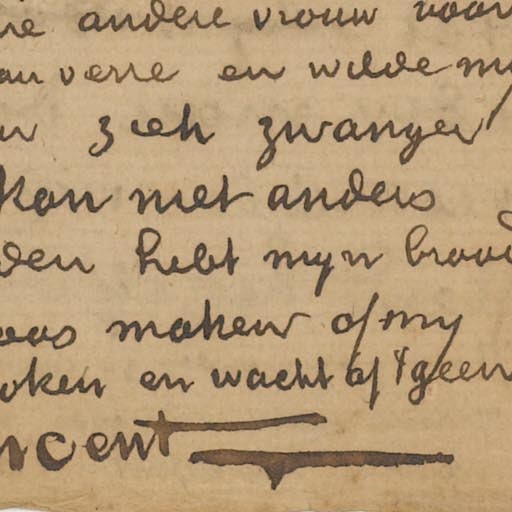 ne andere vrouw voor
an verre en wilde my
n zich zwanger
kon niet anders
den hebt myn brood
aas maken of my
oken en wacht af 't geen
ncent